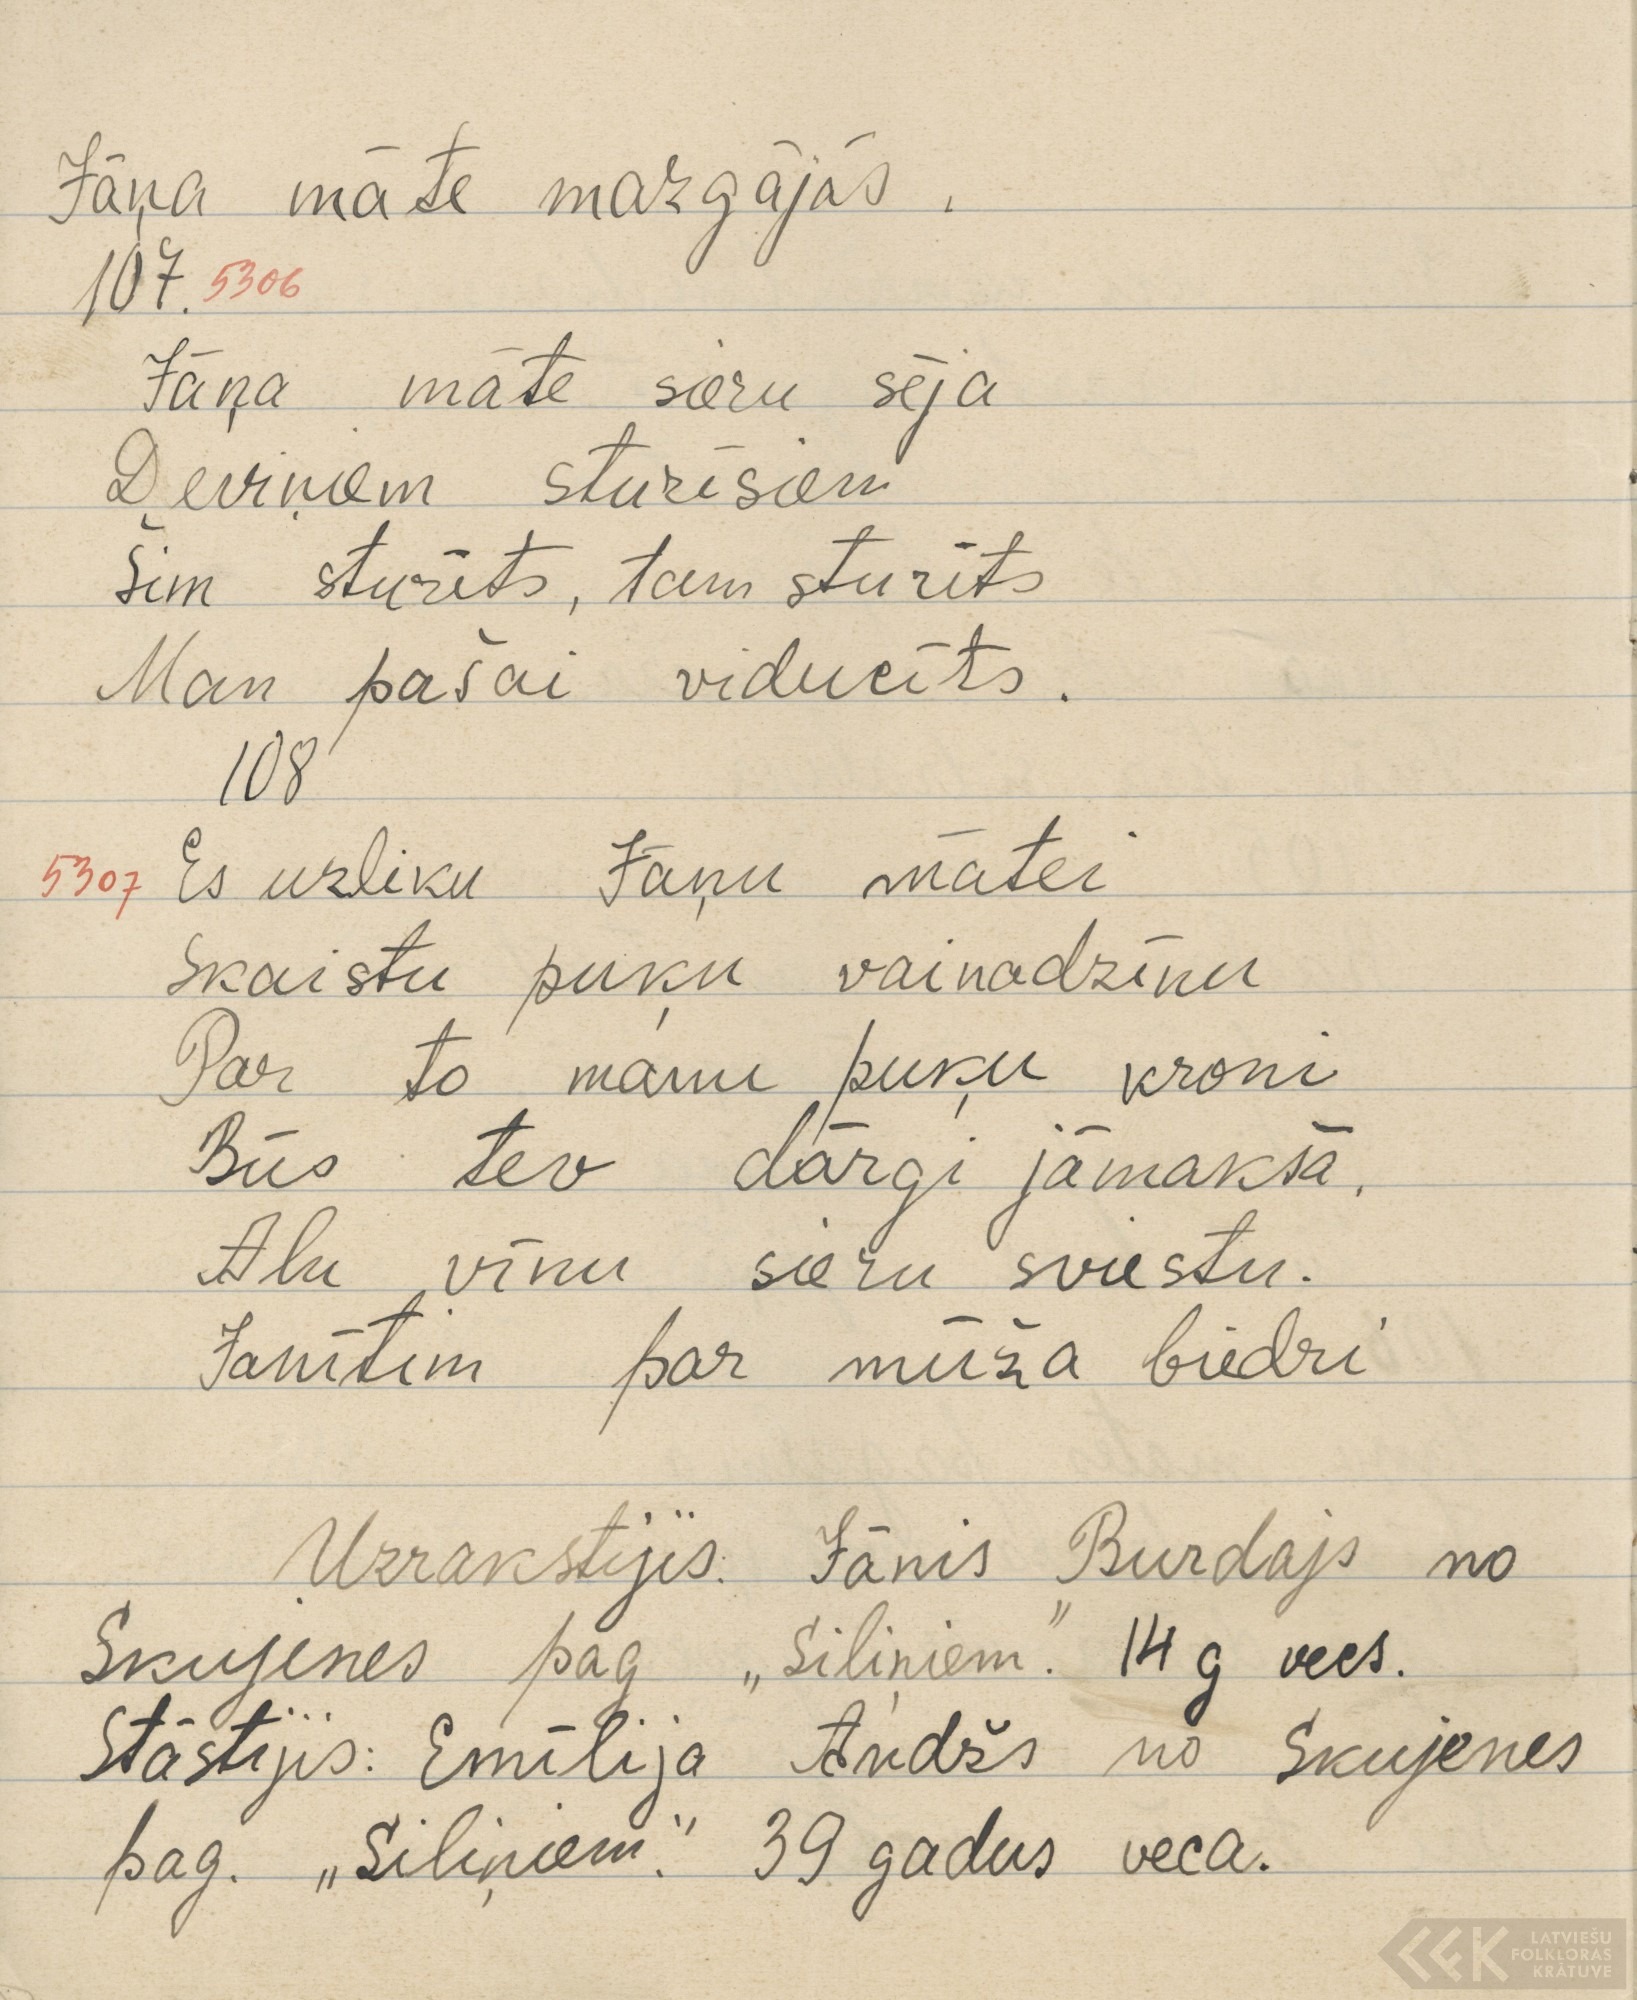 Jāņa māte mazgājās.
107. 5306
Jāņa māte sieru sēja
Deviņiem stūrīšiem
Šim stūrīts, tam stūrīts
Man pašai viducīts.
108
5307 Es uzliku Jāņu mātei
Skaistu puķu vainadziņu
Par to manu puķu kroni
Būs tev dārgi jāmaksā,
Alu vīnu sieru sviestu.
Janītim par mūža biedri
Uzrakstijis: Jānis Burdajs no
Skujenes pag „Siliņiem". 14 g vecs.
Stāstijis: Emīlija Andžs no Skujenes
pag. „Siliņiem". 39 gadus veca.
LATVIEŠU
FOLKLORAS
KRĀTUVE